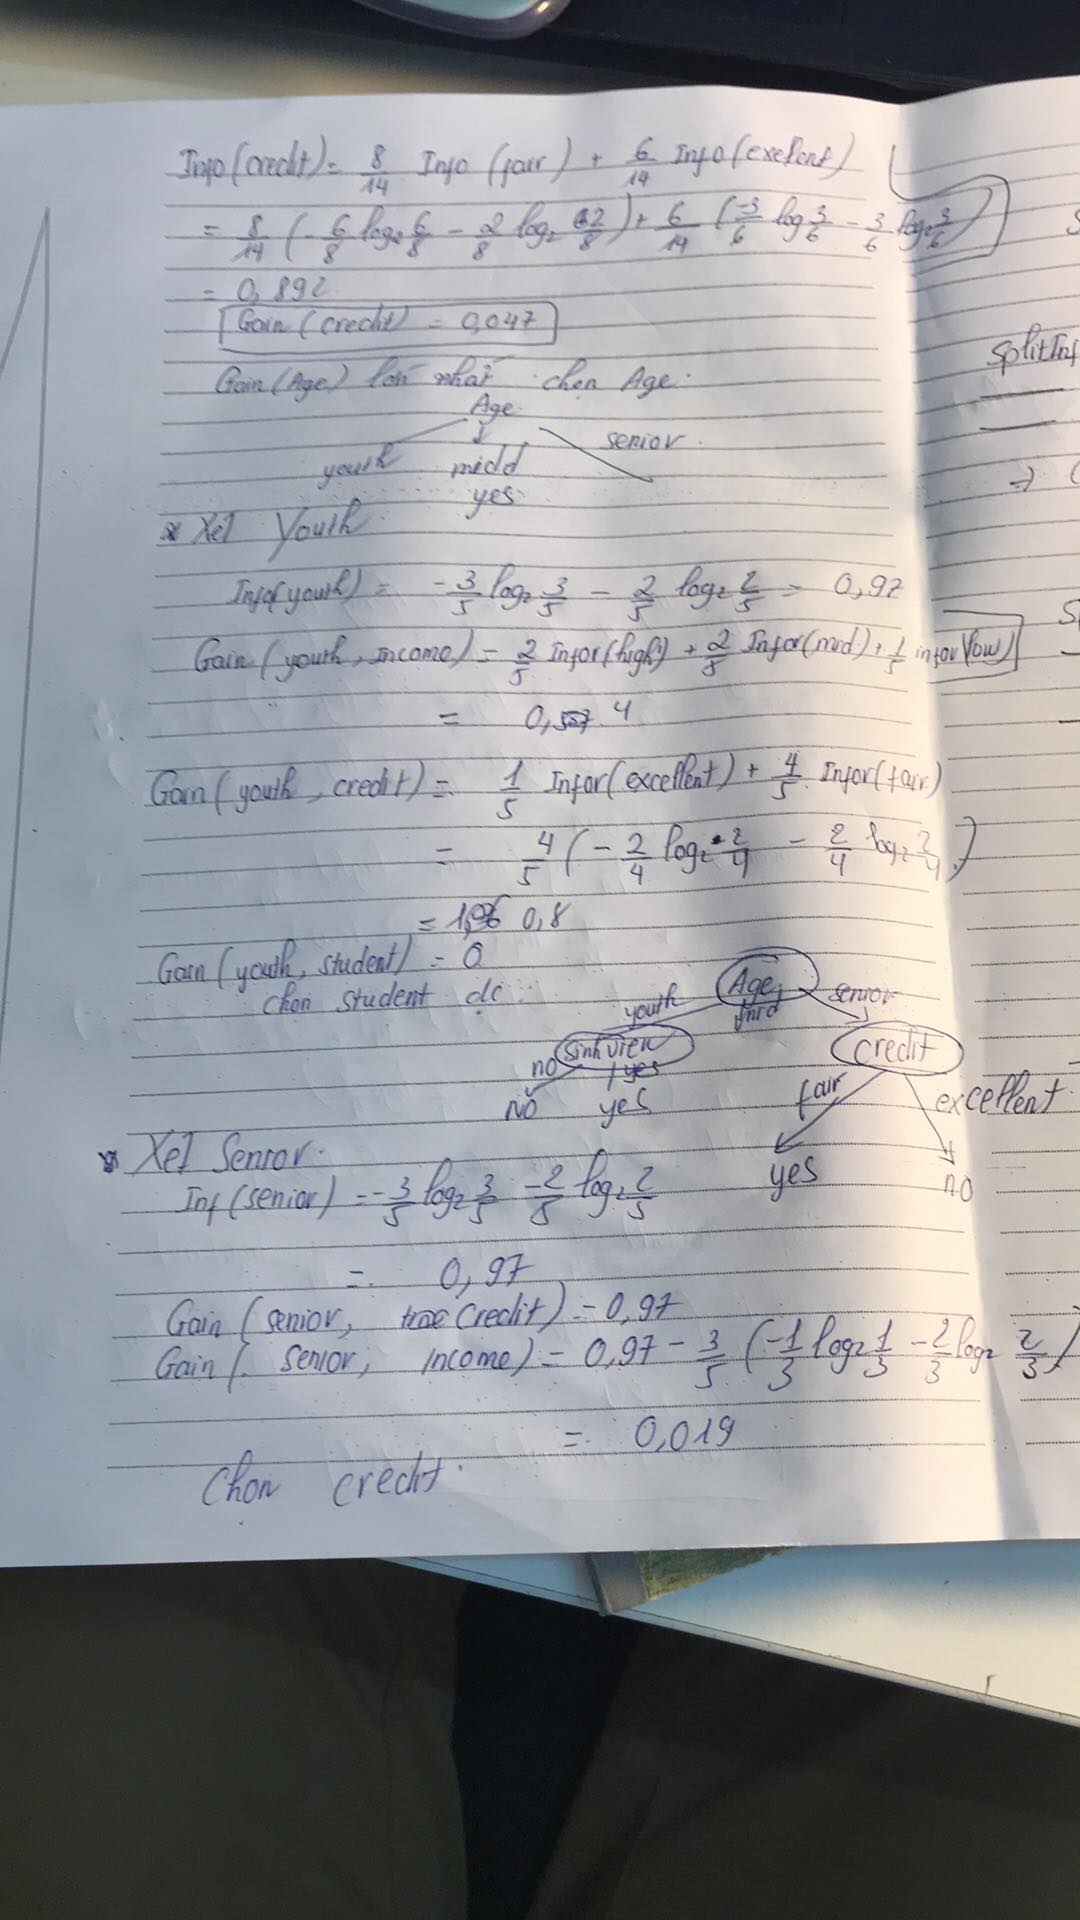 Info (credit) = 8/14 Info (fair) + 6/14 Info (exellent)
= 8/14 (- 6/8 log₂ 6/8 - 2/8 log₂ 2/8) + 6/14 (-3/6 log 3/6 - 3/6 log₂ 3/6)
= 0,892
Gain (credit) = 0,047
Gain (Age) lớn nhất chọn Age.
Age
youth midd senior
yes
* Xét Youth
Info(youth) = - 3/5 log₂ 3/5 - 2/5 log₂ 2/5 = 0,97
Gain (youth, income) = 2/5 Infor(high) + 2/5 Infor(mid) + 1/5 infor(low)
= 0,4
Gain (youth, credit) = 1/5 Infor(excellent) + 4/5 . Infor(fair)
= 4/5 (- 2/4 log₂ 2/4 - 2/4 log₂ 2/4)
= 0,8
Gain (youth, student) = 0
chọn student dc
Age
youth mid senior
sinh viên credit
no yes fair excellent
NO yes yes no
* Xét Senior.
Inf (senior) = - 3/5 log₂ 3/5 - 2/5 log₂ 2/5
= 0,97
Gain (senior, credit) = 0,97
Gain (senior, income) = 0,97 - 3/5 (-1/3 log₂ 1/3 - 2/3 log₂ 2/3)
= 0,019
Chọn credit.
SplitInf
=>